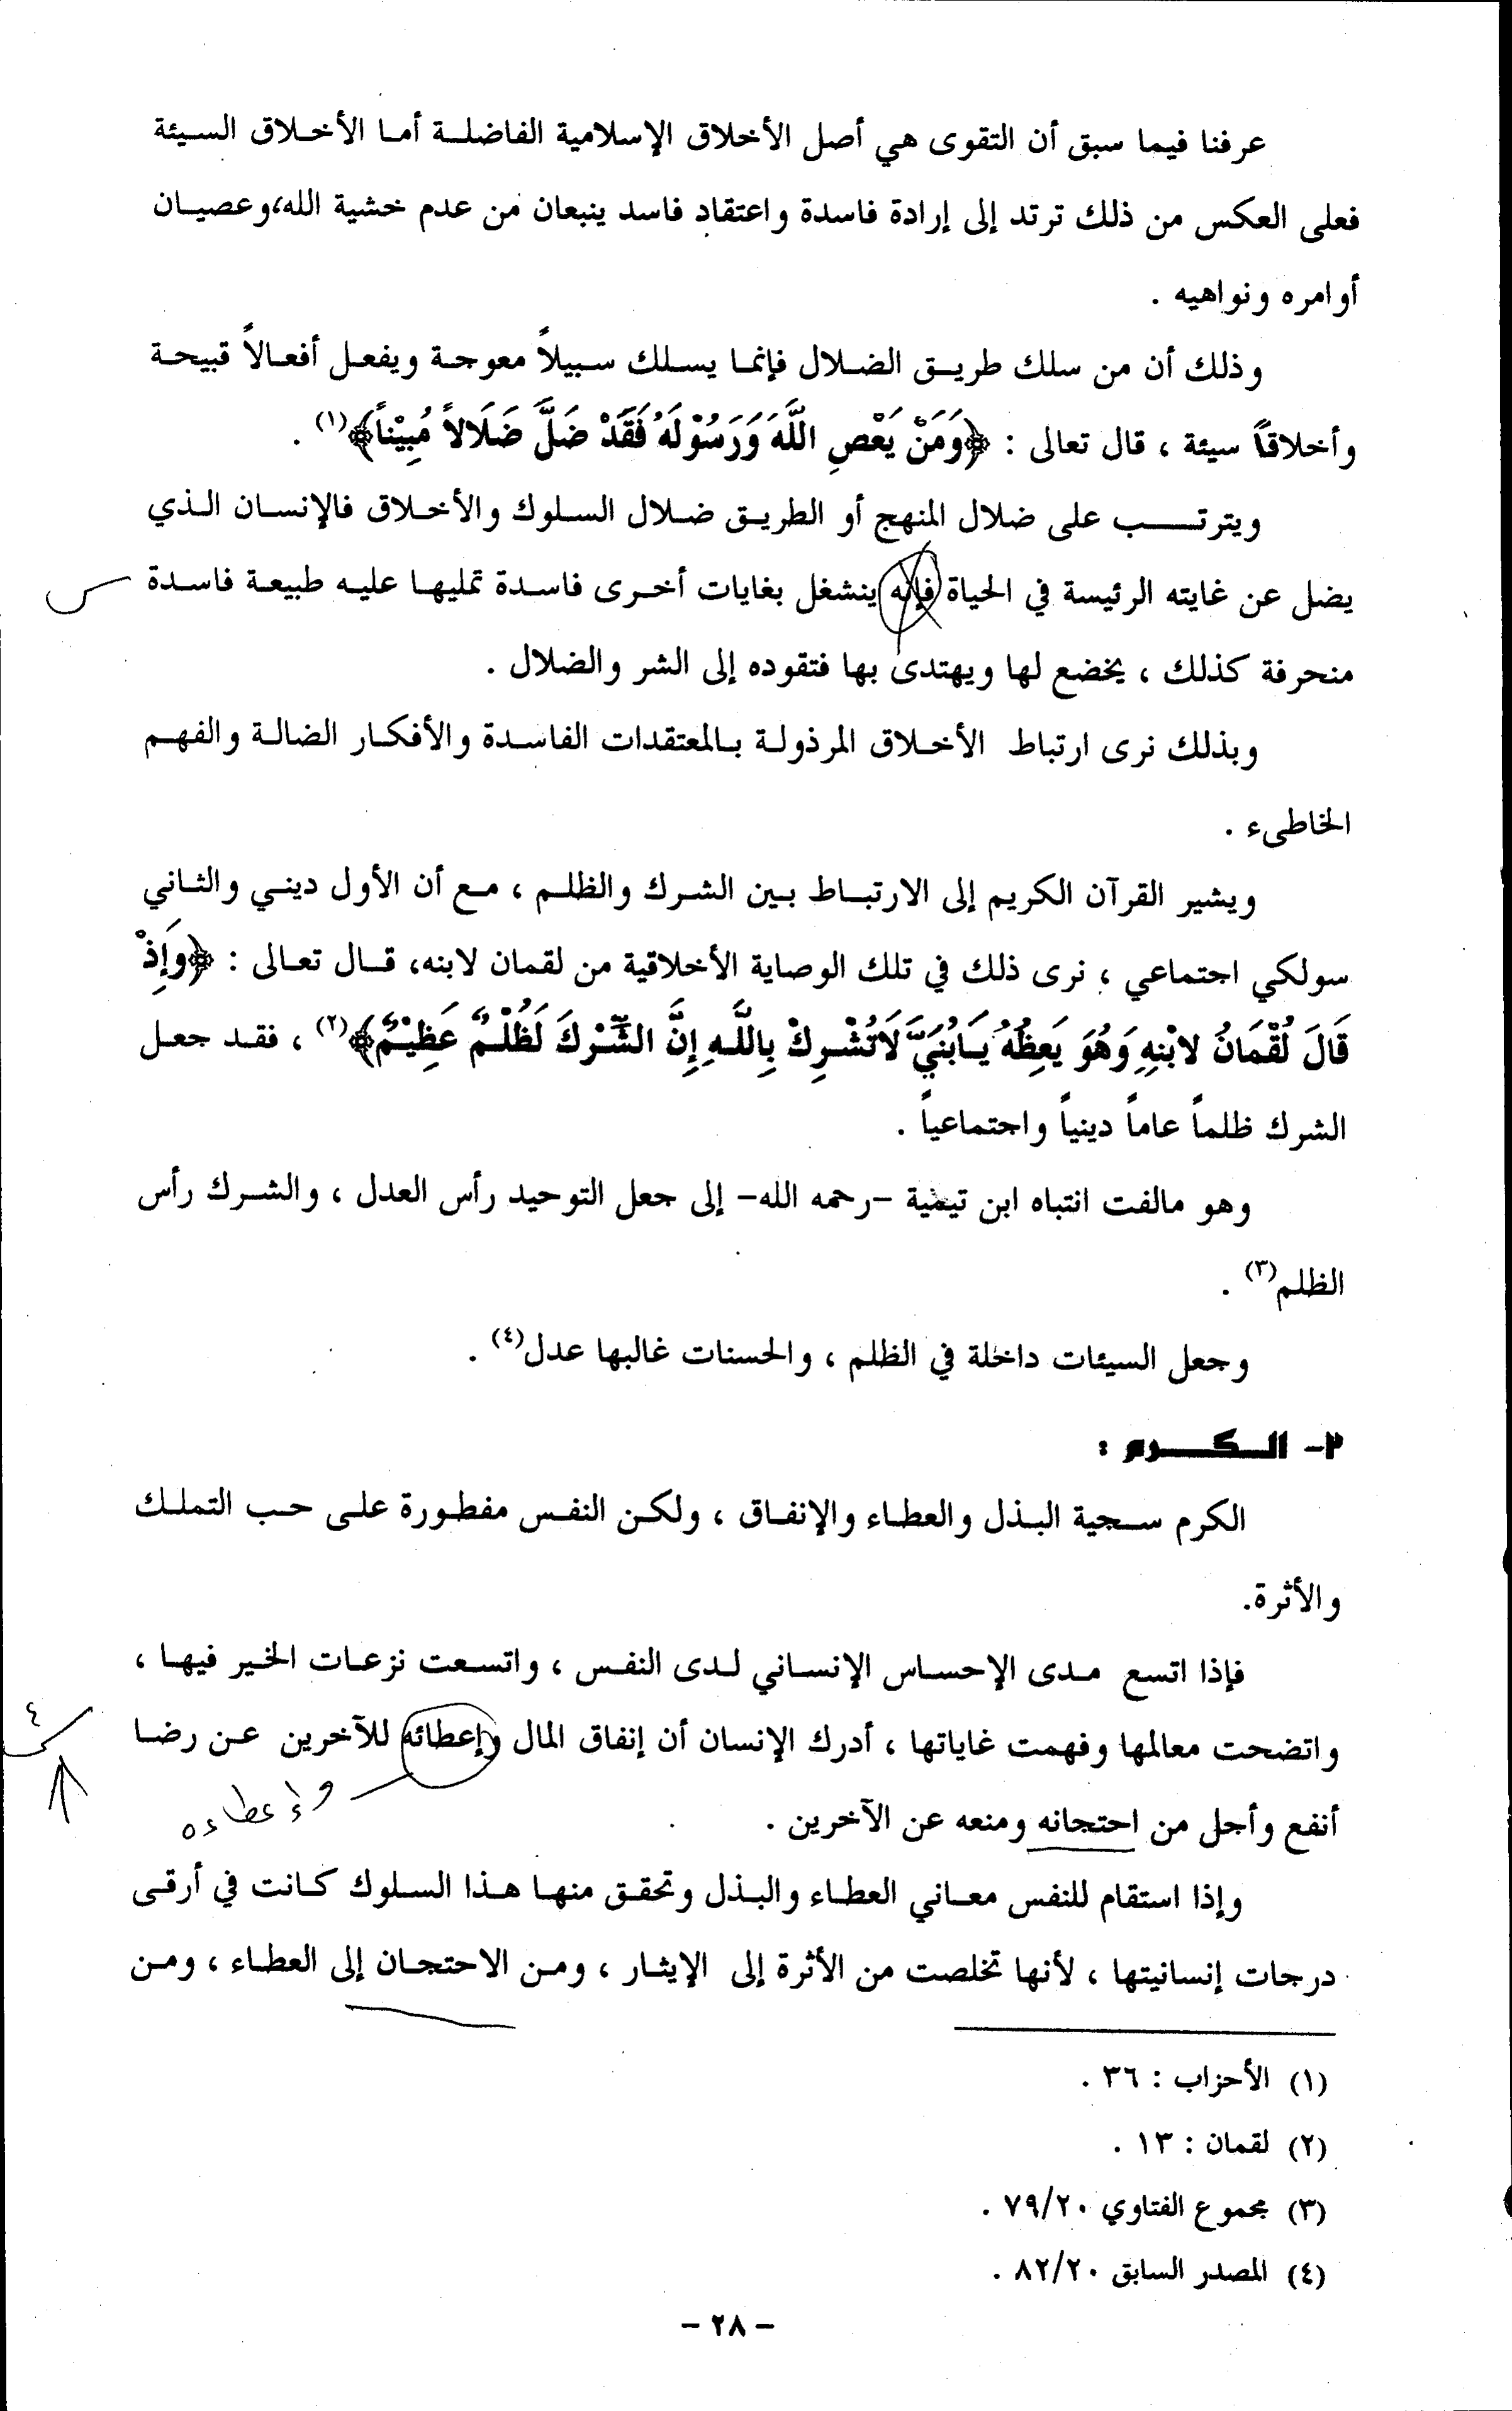 عرفنا فيما سبق أن التقوى هي أصل الأخلاق الإسلامية الفاضلة أما الأخلاق السيئة
فعلى العكس من ذلك ترتد إلى إرادة فاسدة واعتقاد فاسد ينبعان من عدم خشية الله،وعصيان
أوامره ونواهيه .
وذلك أن من سلك طريق الضلال فإنما يسلك سبيلاً معوجة ويفعل أفعالاً قبيحة
وأخلاقاً سيئة ، قال تعالى : ﴿وَمَنْ يَعْصِ اللَّهَ وَرَسُوْلَهُ فَقَدْ ضَلَّ ضَلَالاً مُبِيْناً﴾(١) .
ويترتب على ضلال المنهج أو الطريق ضلال السلوك والأخلاق فالإنسان الذي
يضل عن غايته الرئيسة في الحياة فإنه ينشغل بغايات أخرى فاسدة تمليها عليه طبيعة فاسدة
منحرفة كذلك ، يخضع لها ويهتدى بها فتقوده إلى الشر والضلال .
وبذلك نرى ارتباط الأخلاق المرذولة بالمعتقدات الفاسدة والأفكار الضالة والفهم
الخاطىء .
ويشير القرآن الكريم إلى الارتباط بين الشرك والظلم ، مع أن الأول ديني والثاني
سولكي اجتماعي ، نرى ذلك في تلك الوصاية الأخلاقية من لقمان لابنه، قال تعالى : ﴿وَإِذْ
قَالَ لُقْمَانُ لابْنِهِ وَهُوَ يَعِظُهُ يَابُنَيَّ لَاتُشْرِكْ بِاللَّهِ إِنَّ الشِّرْكَ لَظُلْمٌ عَظِيْمٌ﴾(٢) ، فقد جعل
الشرك ظلماً عاماً دينياً واجتماعياً .
وهو مالفت انتباه ابن تيمية -رحمه الله- إلى جعل التوحيد رأس العدل ، والشرك رأس
الظلم(٣) .
وجعل السيئات داخلة في الظلم ، والحسنات غالبها عدل(٤) .
٢- الكرم :
الكرم سجية البذل والعطاء والإنفاق ، ولكن النفس مفطورة على حب التملك
والأثرة.
فإذا اتسع مدى الإحساس الإنساني لدى النفس ، واتسعت نزعات الخير فيها ،
واتضحت معالمها وفهمت غاياتها ، أدرك الإنسان أن إنفاق المال وإعطائه للآخرين عن رضا
وإعطاءه
أنفع وأجل من احتجانه ومنعه عن الآخرين .
وإذا استقام للنفس معاني العطاء والبذل وتحقق منها هذا السلوك كانت في أرقى
درجات إنسانيتها ، لأنها تخلصت من الأثرة إلى الإيثار ، ومن الاحتجان إلى العطاء ، ومن
(١) الأحزاب : ٣٦ .
(٢) لقمان : ١٣ .
(٣) مجموع الفتاوي ٧٩/٢٠ .
(٤) المصدر السابق ٨٢/٢٠ .
- ٢٨ -